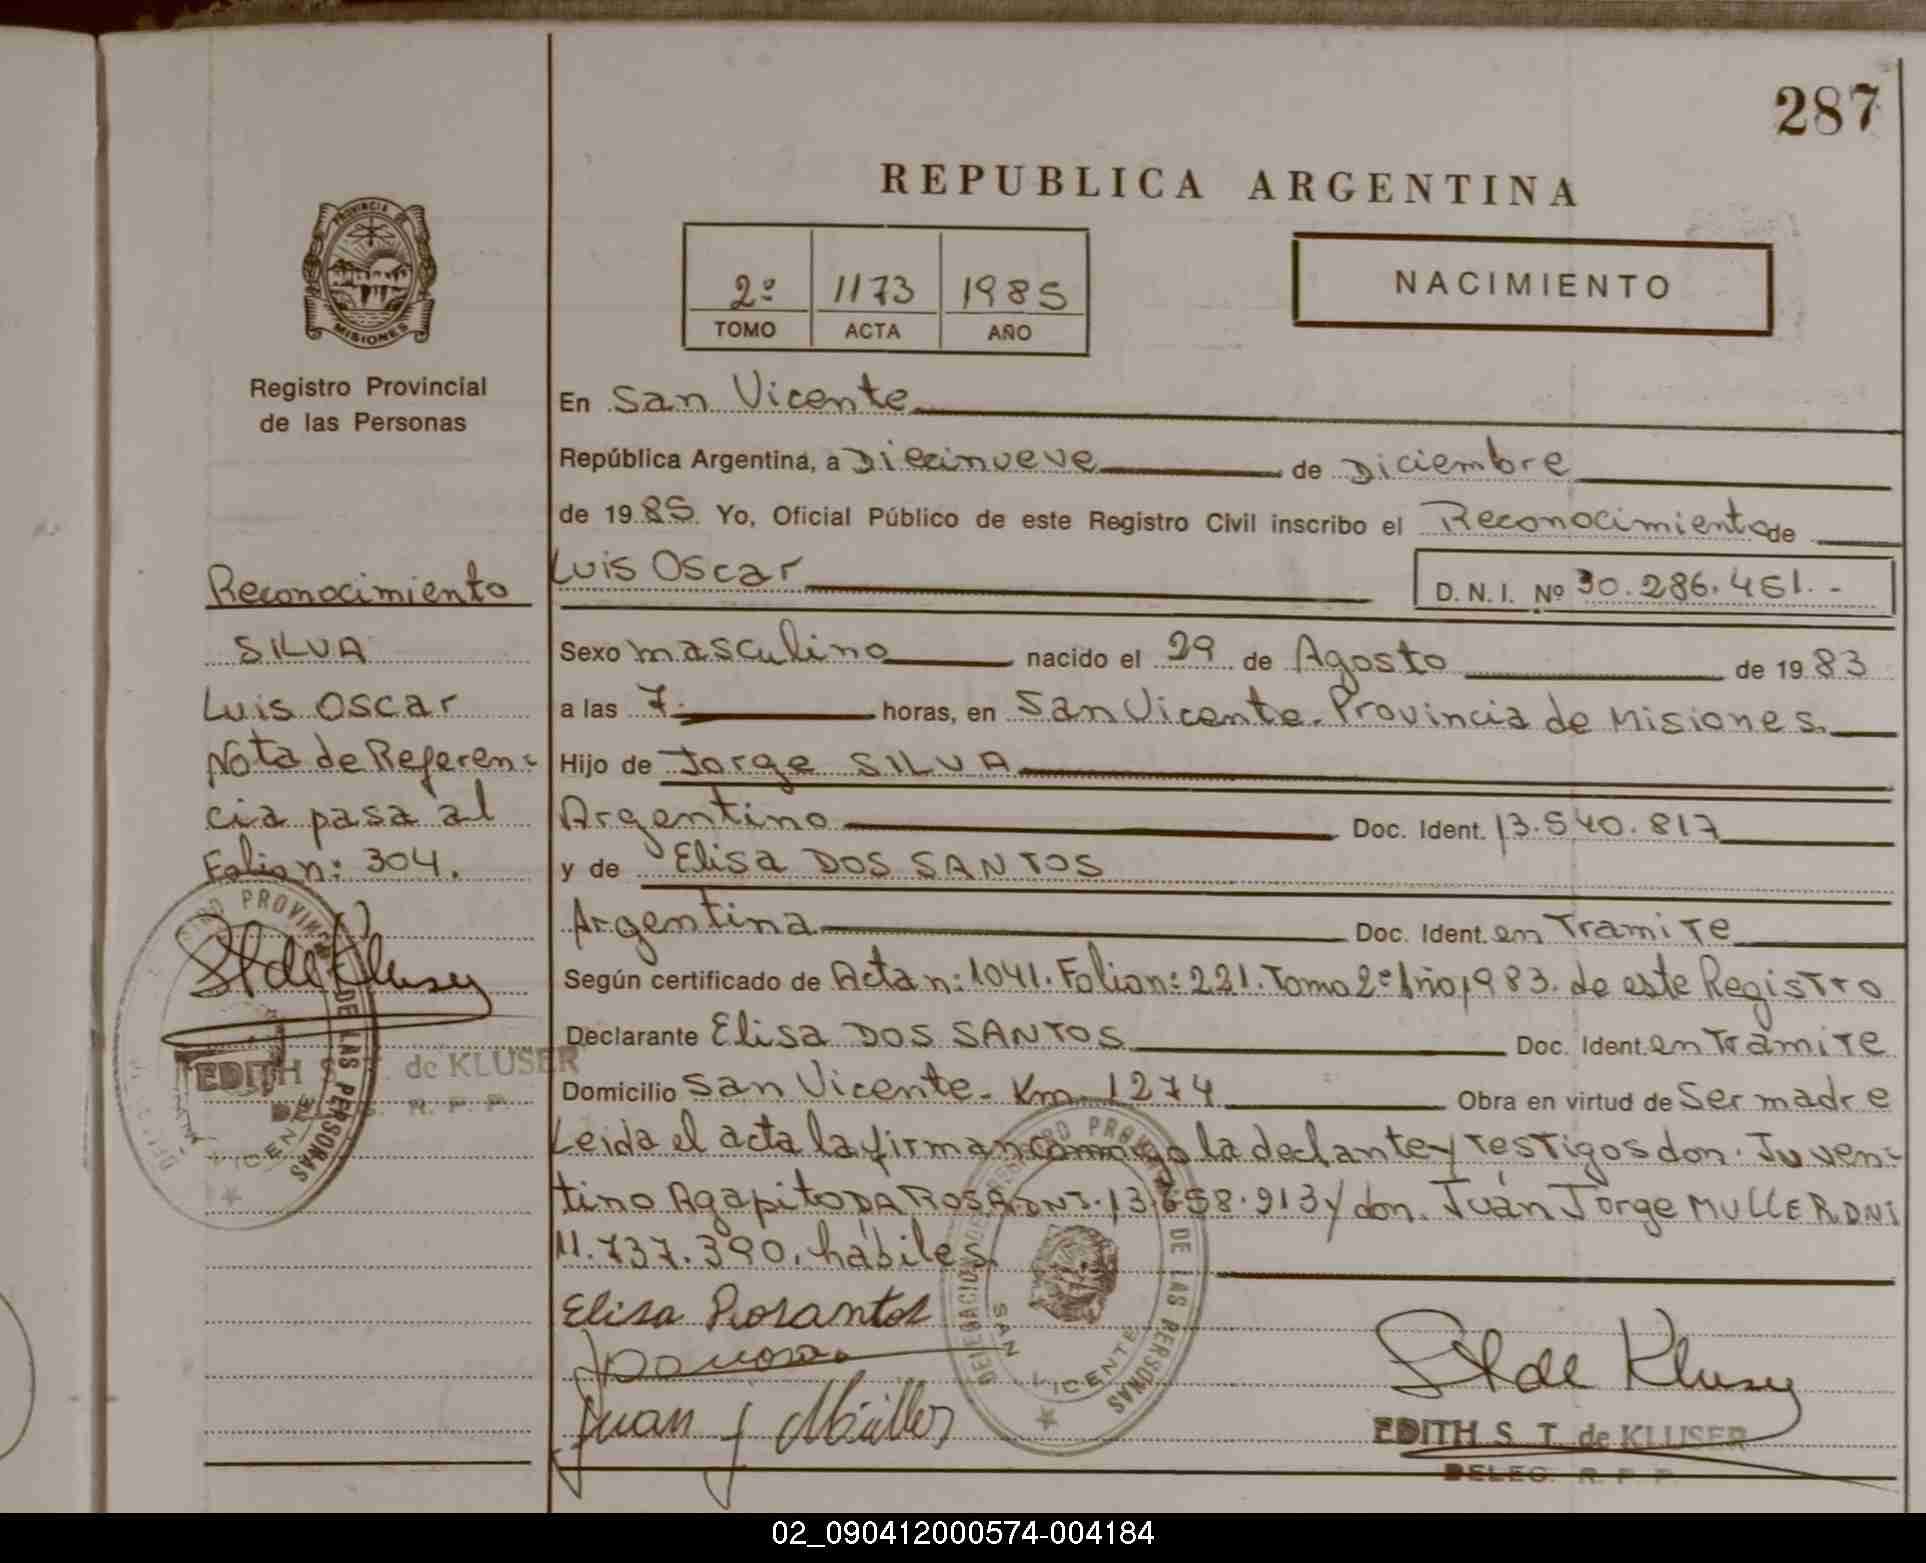 287
REPUBLICA ARGENTINA
PROVINCIA DE
MISIONES
2º 1173 1985
TOMO ACTA AÑO
NACIMIENTO
Registro Provincial
de las Personas
En San Vicente
República Argentina, a Diecinueve de Diciembre
de 1985. Yo, Oficial Público de este Registro Civil inscribo el Reconocimiento de
Luis Oscar D.N.I. Nº 30.286.461.-
Sexo masculino nacido el 29 de Agosto de 1983
a las 7. horas, en San Vicente. Provincia de Misiones.
Hijo de Jorge SILVA
Argentino Doc. Ident. 13.540.817
y de Elisa DOS SANTOS
Argentina Doc. Ident. en Tramite
Según certificado de Acta n: 1041. Folio n: 221. Tomo 2º Año 1983. de este Registro
Declarante Elisa DOS SANTOS Doc. Ident. en Tramite
Domicilio San Vicente. Km 1274 Obra en virtud de Ser madre
Leida el acta la firman conmigo la declante y testigos don. Juven-
tino Agapito DA ROSA DNI. 13.658.913 y don. Juan Jorge MULLER. DNI
11.737.390. hábiles.
Elisa Dosantos
Juan J Müller
St de Kluser
EDITH S. T. de KLUSER
DELEG. R. P. P.
DELEGACION DE REGISTRO PROVINCIAL DE LAS PERSONAS
SAN VICENTE
Reconocimiento
SILVA
Luis Oscar
Nota de Referen-
cia pasa al
Folio n: 304.
St de Kluser
EDITH S. de KLUSER
DELEG. R. P. P.
DE LAS PERSONAS
VICENTE
02_090412000574-004184